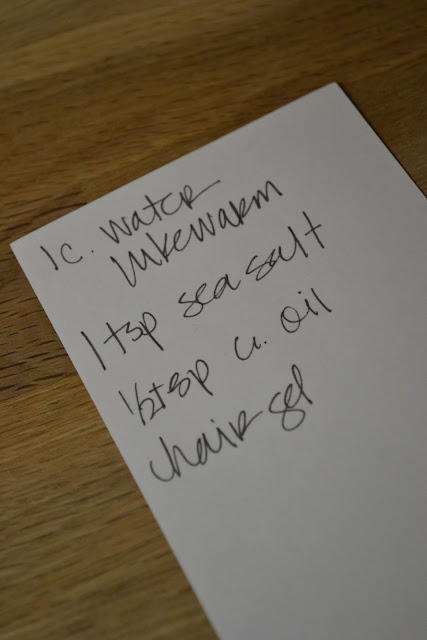 1 c. water
lukewarm
1 tsp sea salt
1/2 tsp oil
hair gel